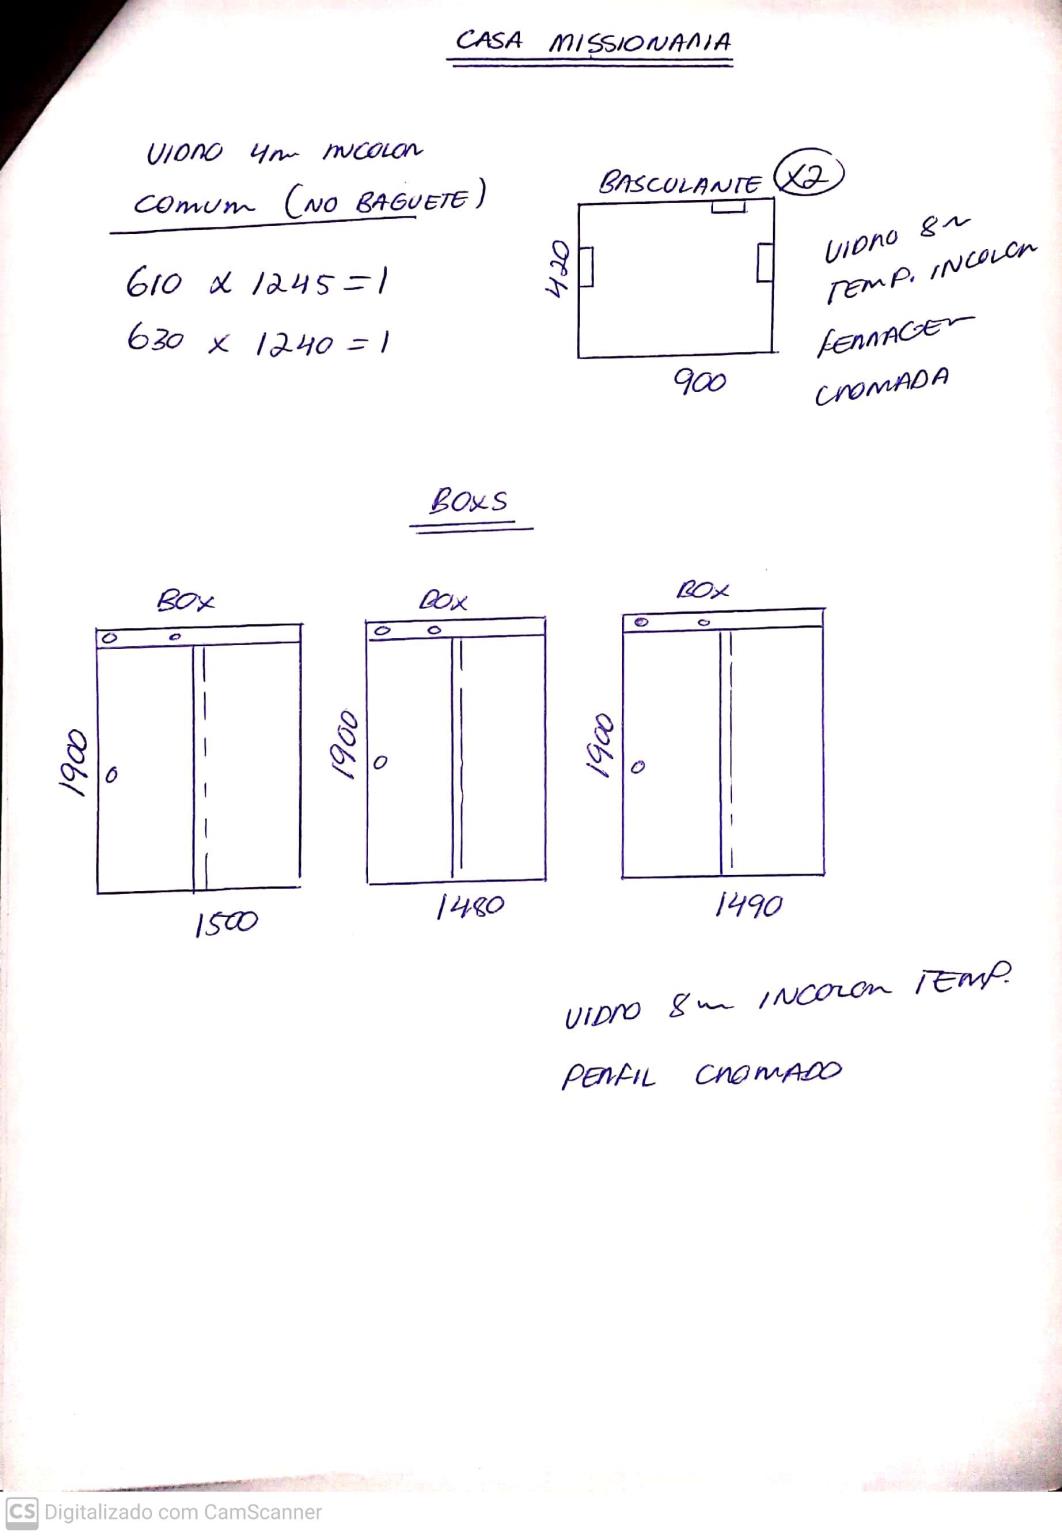 CASA MISSIONARIA
VIDRO 4m INCOLOR
COMUM (NO BAGUETE)
610 x 1245 = 1
630 x 1240 = 1
BASCULANTE X2
420
900
VIDRO 8m
TEMP. INCOLOR
FERRAGEM
CROMADA
BOXS
BOX BOX BOX
1900 1900 1900
1500 1480 1490
VIDRO 8m INCOLOR TEMP.
PERFIL CROMADO
CS Digitalizado com CamScanner